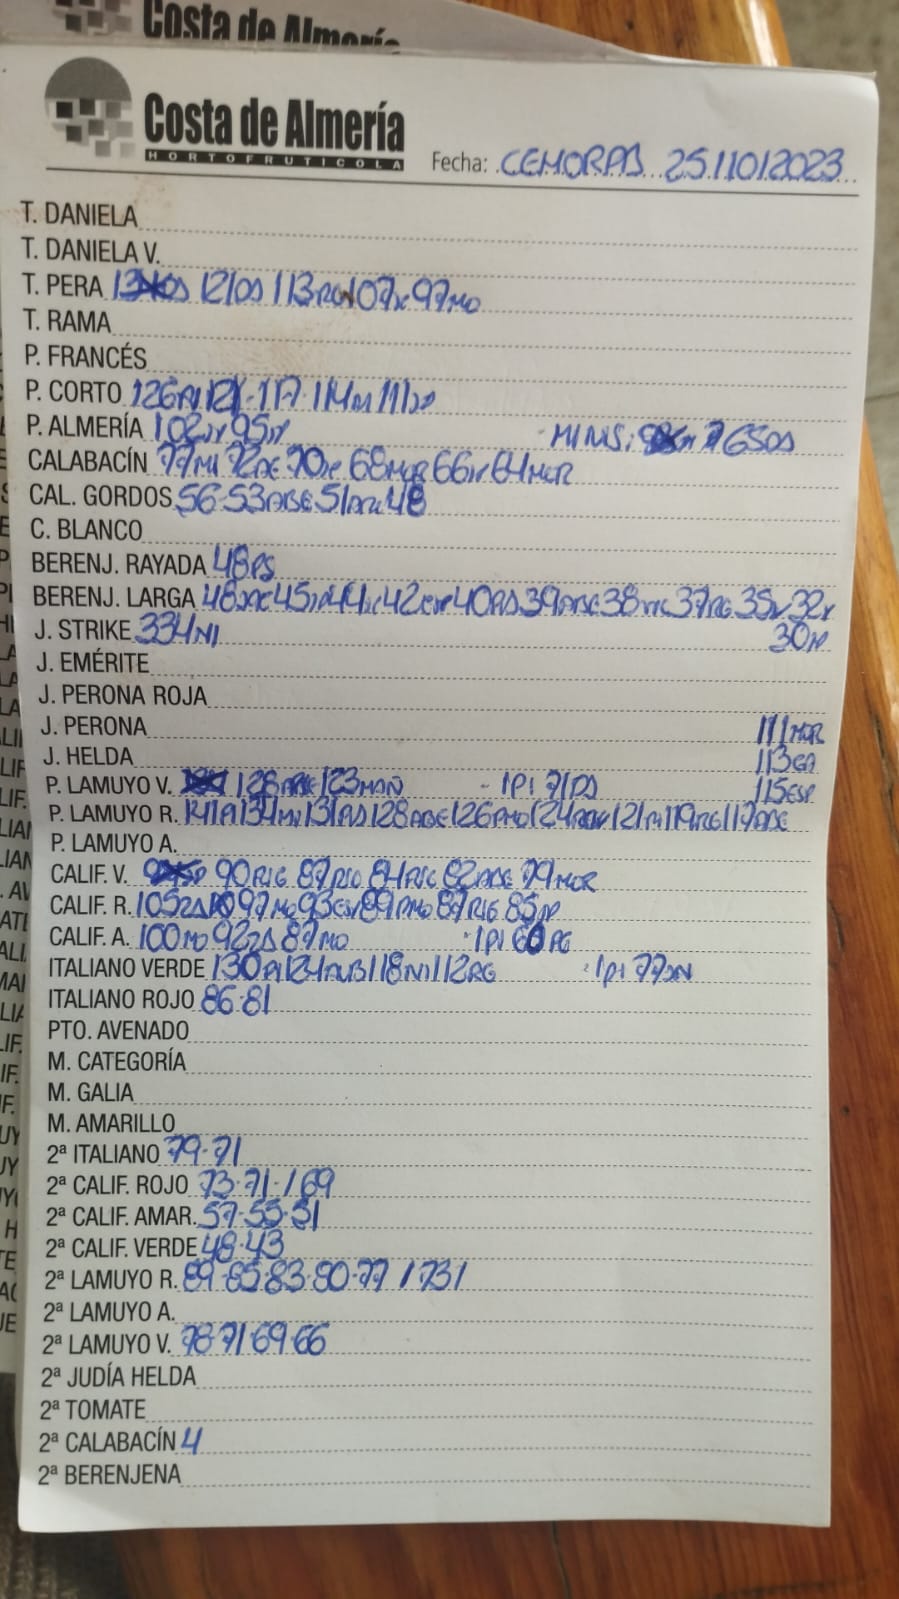 Costa de Almería
Costa de Almería
HORTOFRUTICOLA
Fecha: CEHORPA 25/10/2023
T. DANIELA
T. DANIELA V.
T. PERA 121DS 113 107 97MO
T. RAMA
P. FRANCÉS
P. CORTO 126 121 117 114 111
P. ALMERÍA 102 95 MINIS: 76SOS
CALABACÍN 77MI 72 70 68MOR 66 64MOR
CAL. GORDOS 56·53ABE 51 48
C. BLANCO
BERENJ. RAYADA 48PS
BERENJ. LARGA 48 45 44 42 40 39 38 37RG 35 32
J. STRIKE 334NI 30
J. EMÉRITE
J. PERONA ROJA
J. PERONA 111MOR
J. HELDA 113GA
P. LAMUYO V. 128 123MAN ·1P1 71PS 115ESP
P. LAMUYO R. 141 134 131 128ABE 126 124 121 119RG 117
P. LAMUYO A.
CALIF. V. 90RIG 87RIO 84 82 79MOR
CALIF. R. 105 97MO 93 89PMO 87RIG 85
CALIF. A. 100MO 92 87MO ·1P1 60PG
ITALIANO VERDE 130PI 124 118NI 112RG ·1P1 77
ITALIANO ROJO 86·81
PTO. AVENADO
M. CATEGORÍA
M. GALIA
M. AMARILLO
2ª ITALIANO 79·71
2ª CALIF. ROJO 73·71·/69
2ª CALIF. AMAR. 57·55·51
2ª CALIF. VERDE 48·43
2ª LAMUYO R. 89·85·83·80·77/73/
2ª LAMUYO A.
2ª LAMUYO V. 78·71·69·66
2ª JUDÍA HELDA
2ª TOMATE
2ª CALABACÍN 4
2ª BERENJENA